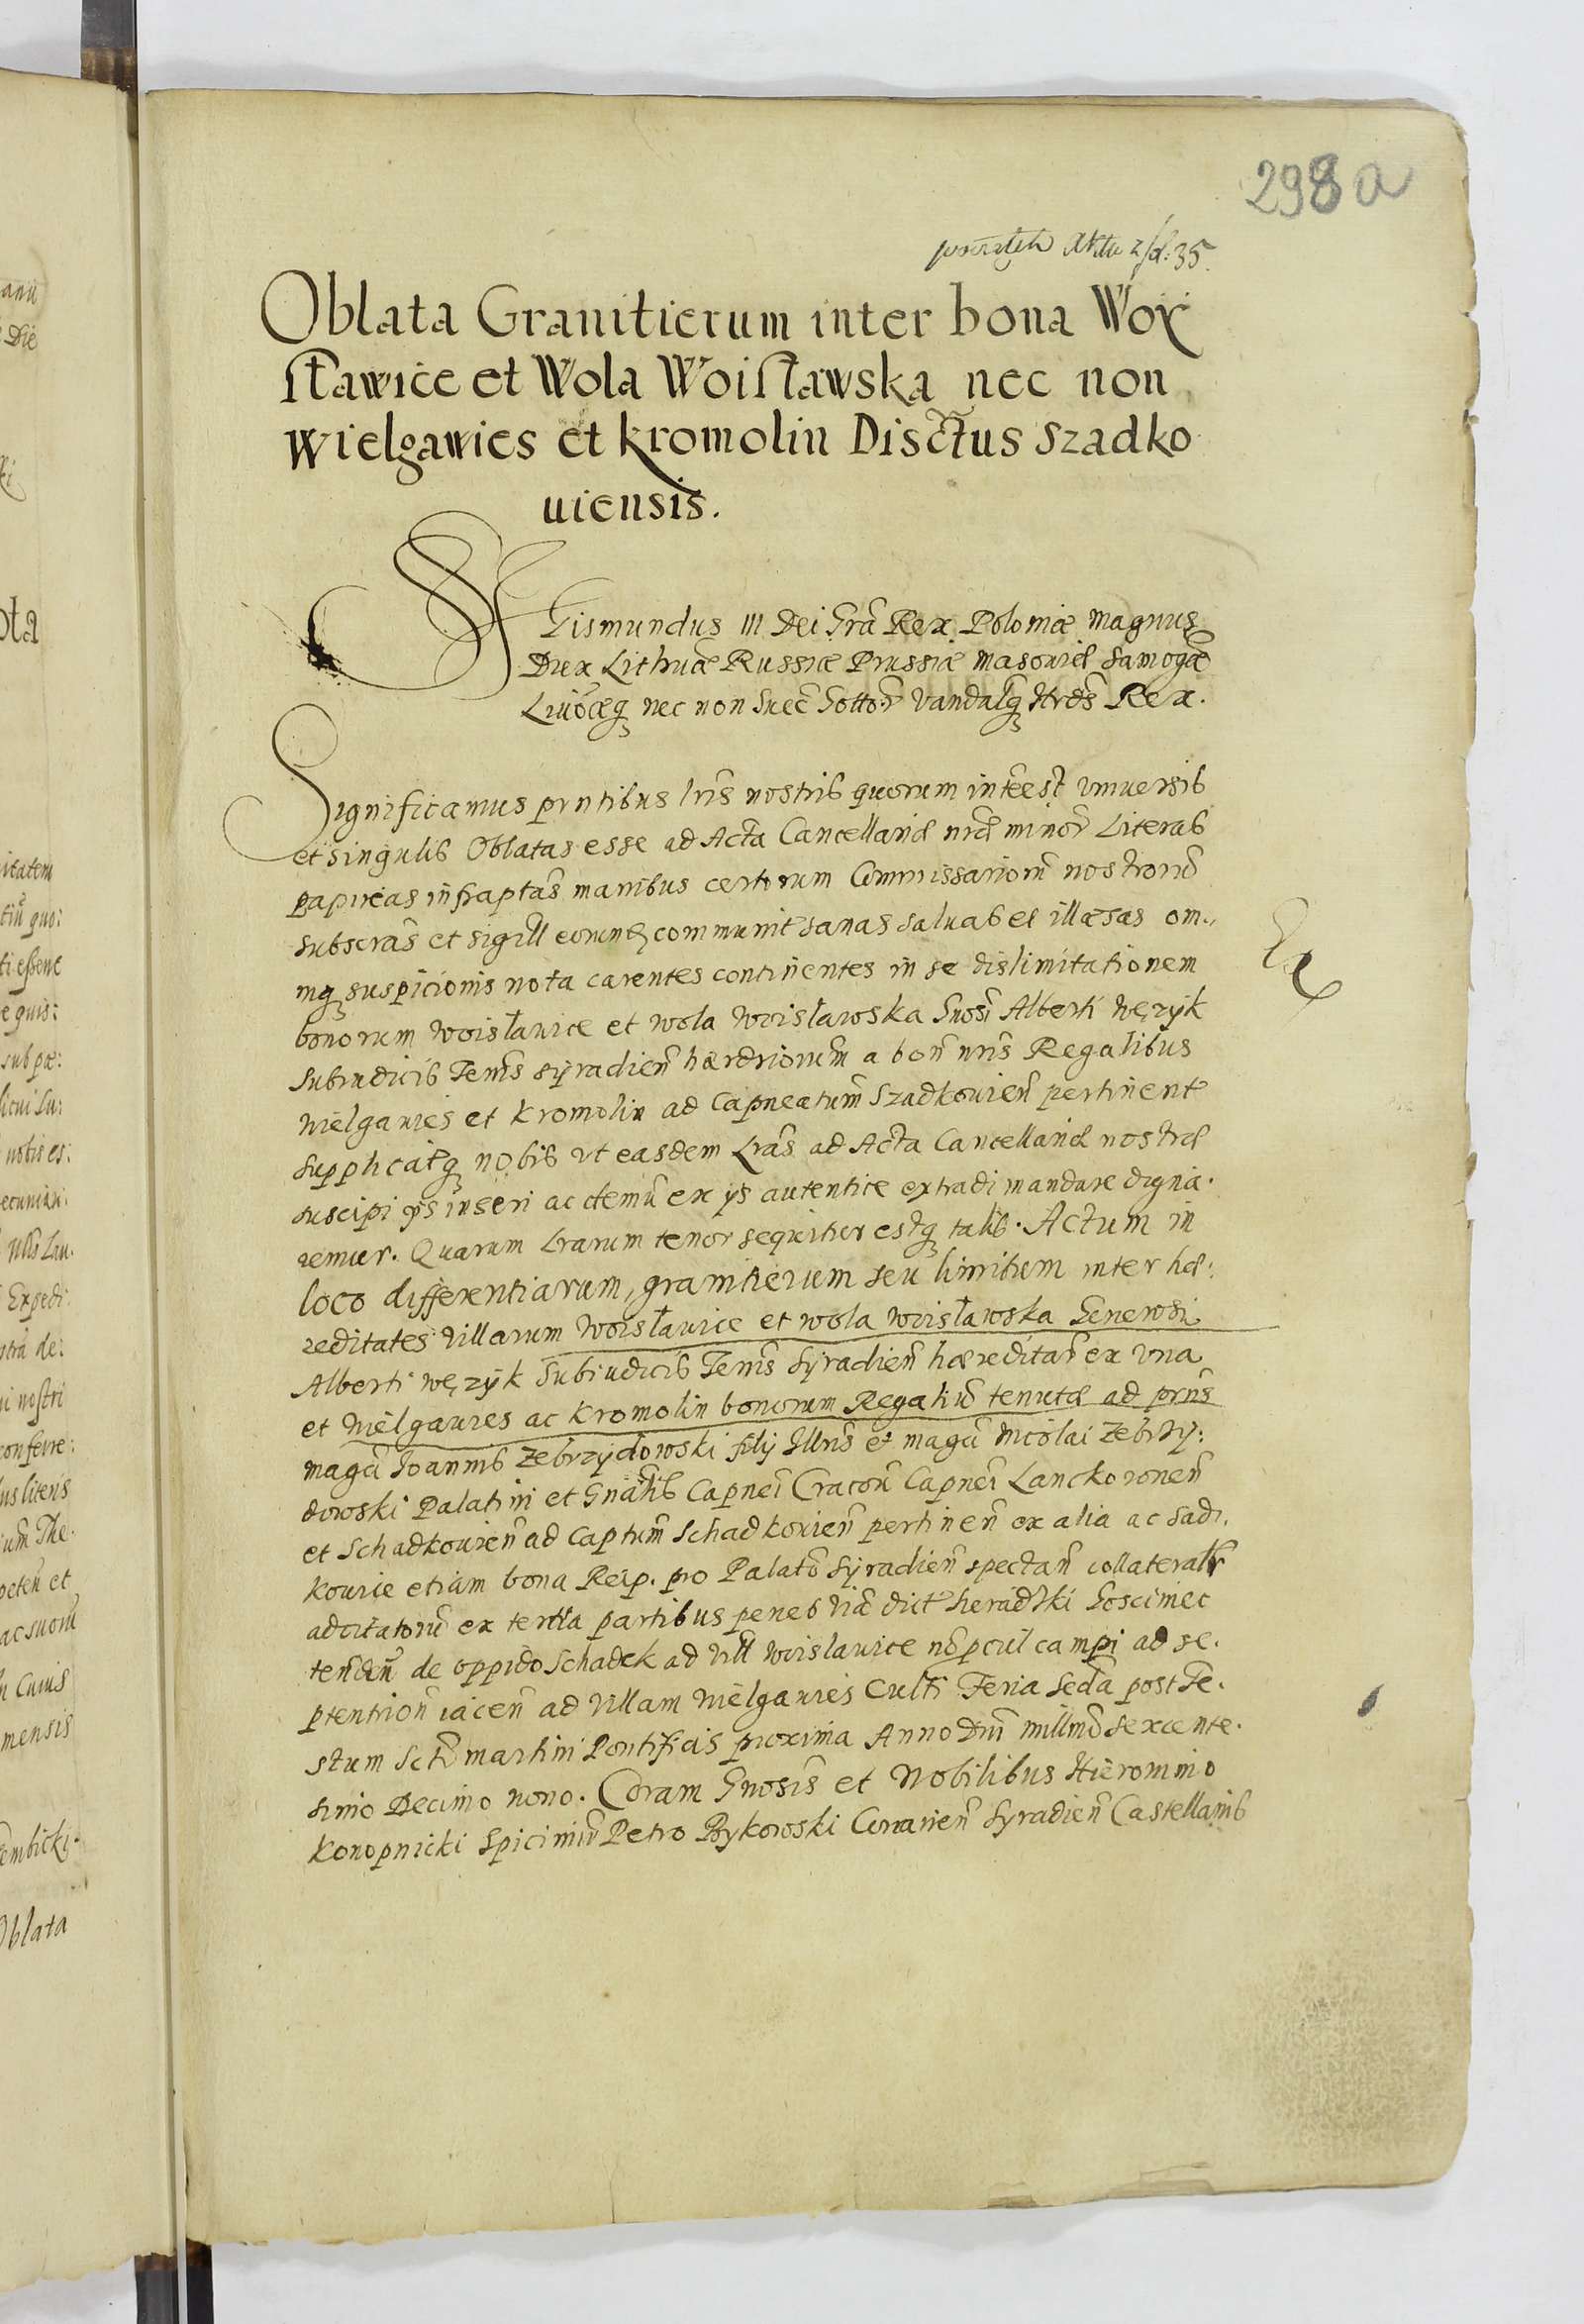 298 a
początek Aktu z fol: 35.
Oblata Granitierum inter bona Woy
sławice et Wola Woisławska nec non
Wielgawies et Kromolin Disctus Szadko
uiensis.
SIGismundus III Dei Gra Rex Poloniæ Magnus
Dux Lithuæ Russiæ Prussiæ Masouiæ Samogæ
Liuoæq nec non Suec Gottor Vandalq Hrds Rex.
Significamus prntibus lris nostris quorum interest vniuersis
et singulis Oblatas esse ad Acta Cancellariæ nræ minor Literas
papireas infraptas manibus certorum Commissariorum nostroru
subscras et sigill eorund communit sanas saluas et illæsas om.,
mq suspicionis nota carentes continentes in se dislimitationem
bonorum Woisławice et Wola Woisławska Gnosi Alberti Wężyk
Subiudicis Terris Syradien hærdriorum a bon nris Regalibus
Wielgawies et Kromolin ad Capneatum Szadkouien pertinent
supplicatq nobis vt easdem Lras ad Acta Cancellariæ nostræ
suscipi ys inseri ac demu ex ys autentice extradi mandare digna.
remur. Quarum Lrarum tenor sequitur estq talis. Actum in
loco differentiarum, granitierum seu limitum inter hæ:
reditates Villarum Woisławice et Wola Woisławska Generosi
Alberti Wężyk Subiudicis Terris Syradien hæreditar ex vna
et Wielgawies ac Kromolin bonorum Regaliu tenutæ ad prns
Magci Joannis Zebrzydowski filij Illris et magci Nicolai Zebrzy:
dowski Palatini et Gnalis Capnei Cracon Capnei Lanckoronen
et Schadkouien ad Captum Schadkouien pertinen ex alia ac Sadi,
kowie etiam bona Reip. pro Palato Syradien spectan collateralr
adcitatoru ex tertia partibus penes via dict Sieradzki Gosciniec
tenden de oppido Schadek ad Vill Woislawice no pcul campi ad se.
ptentrion iacen ad Villam Wielgawies Culti Feria Scda post Fe.
stum Scti Martini Pontificis proxima Anno Dni millmo sexcente.
simo Decimo nono. Coram Gnosis et Nobilibus Hieronimo
Konopnicki Spicimir Petro Bykowski Conarien Syradien Castellanis
Ex